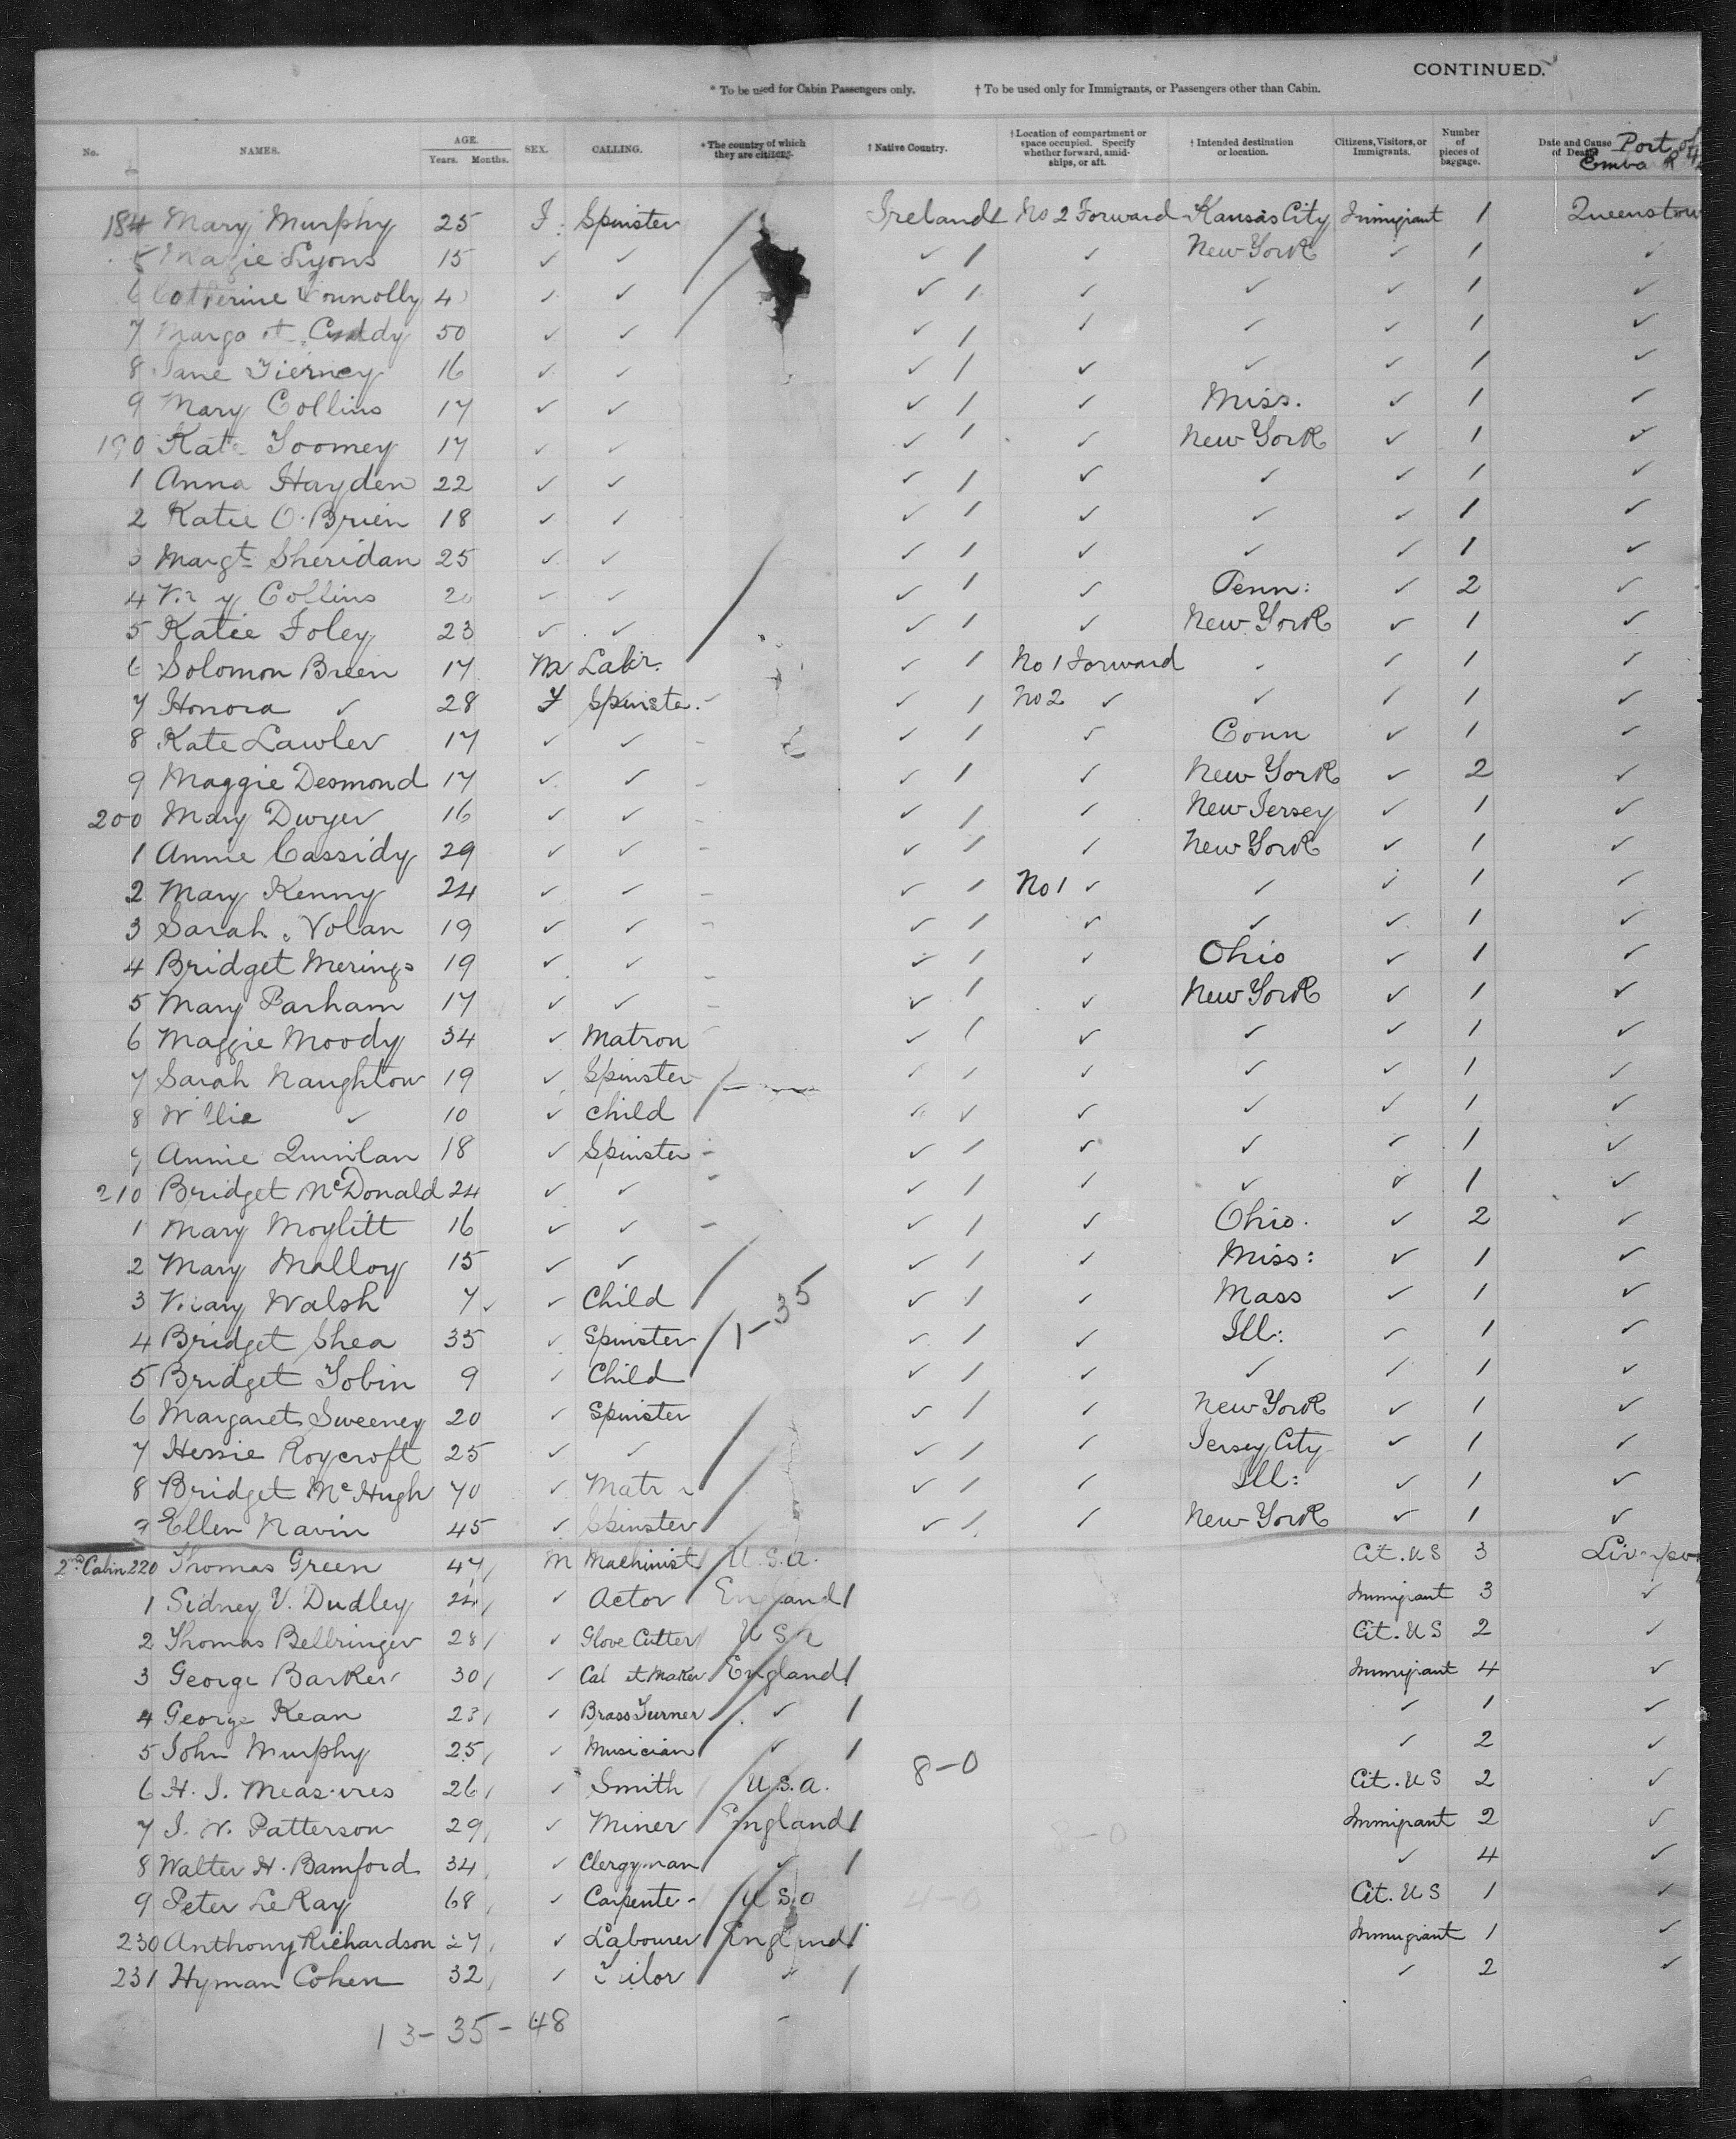 CONTINUED.
* To be used for Cabin Passengers only. † To be used only for Immigrants, or Passengers other than Cabin.
No. NAMES. AGE. Years. Months. SEX. CALLING. * The country of which they are citizens. † Native Country. † Location of compartment or space occupied. Specify whether forward, amidships, or aft. † Intended destination or location. Citizens, Visitors, or Immigrants. Number of pieces of baggage. Date and Cause of Death Port of Embark
184 Mary Murphy 25 F. Spinster / Ireland No 2 Forward Kansas City Immigrant 1 Queenstow
5 Lyons 15 ✓ ✓ / ✓ / ✓ New York ✓ 1 ✓
6 Catherine Connolly 4 ✓ ✓ / ✓ / ✓ ✓ ✓ 1 ✓
7 Cuddy 50 ✓ ✓ ✓ / ✓ ✓ ✓ 1 ✓
8 Jane Tierney 16 ✓ ✓ ✓ / ✓ ✓ ✓ 1 ✓
9 Mary Collins 17 ✓ ✓ ✓ / ✓ Miss. ✓ 1 ✓
190 Kate Toomey 17 ✓ ✓ ✓ / ✓ New York ✓ 1 ✓
1 Anna Hayden 22 ✓ ✓ ✓ / ✓ ✓ ✓ 1 ✓
2 Katie O'Brien 18 ✓ ✓ ✓ / ✓ ✓ ✓ 1 ✓
3 Margt Sheridan 25 ✓ ✓ ✓ / ✓ ✓ ✓ 1 ✓
4 Collins 20 ✓ ✓ ✓ / ✓ Penn: ✓ 2 ✓
5 Katie Foley 23 ✓ ✓ / ✓ / ✓ New York ✓ 1 ✓
6 Solomon Breen 17 M Labr. ✓ / No 1 Forward ✓ ✓ 1 ✓
7 Honora ✓ 28 F Spinster ✓ / No 2 ✓ ✓ ✓ 1 ✓
8 Kate Lawler 17 ✓ ✓ - ✓ / ✓ Conn ✓ 1 ✓
9 Maggie Desmond 17 ✓ ✓ - ✓ / ✓ New York ✓ 2 ✓
200 Mary Dwyer 16 ✓ ✓ - ✓ / ✓ New Jersey ✓ 1 ✓
1 Annie Cassidy 29 ✓ ✓ - ✓ / ✓ New York ✓ 1 ✓
2 Mary Kenny 24 ✓ ✓ - ✓ / No 1 ✓ ✓ ✓ 1 ✓
3 Sarah Nolan 19 ✓ ✓ - ✓ / ✓ ✓ ✓ 1 ✓
4 Bridget Merings 19 ✓ ✓ - ✓ / ✓ Ohio ✓ 1 ✓
5 Mary Parham 17 ✓ ✓ - ✓ / ✓ New York ✓ 1 ✓
6 Maggie Moody 34 ✓ Matron - ✓ / ✓ ✓ ✓ 1 ✓
7 Sarah Naughton 19 ✓ Spinster ✓ / ✓ ✓ ✓ 1 ✓
8 Willie ✓ 10 ✓ Child / ✓ ✓ ✓ ✓ ✓ 1 ✓
9 Annie Quinlan 18 ✓ Spinster - ✓ / ✓ ✓ ✓ 1 ✓
210 Bridget McDonald 24 ✓ ✓ - ✓ / ✓ ✓ ✓ 1 ✓
1 Mary Moylitt 16 ✓ ✓ - ✓ / ✓ Ohio. ✓ 2 ✓
2 Mary Malloy 15 ✓ ✓ ✓ / ✓ Miss: ✓ 1 ✓
3 Mary Walsh 7 ✓ ✓ Child / ✓ / ✓ Mass ✓ 1 ✓
4 Bridget Shea 35 ✓ Spinster / 1-35 ✓ / ✓ Ill: ✓ 1 ✓
5 Bridget Tobin 9 ✓ Child ✓ / ✓ ✓ ✓ 1 ✓
6 Margaret Sweeney 20 ✓ Spinster ✓ / ✓ New York ✓ 1 ✓
7 Hessie Roycroft 25 ✓ ✓ / ✓ / ✓ Jersey City ✓ 1 ✓
8 Bridget McHugh 70 ✓ Matron ✓ / ✓ Ill: ✓ 1 ✓
9 Ellen Navin 45 ✓ Spinster / ✓ / ✓ New York ✓ 1 ✓
2nd Cabin 220 Thomas Green 47 M Machinist / U.S.A. Cit. US 3 Liverpo
1 Sidney V. Dudley 24 ✓ Actor England / Immigrant 3 ✓
2 Thomas Bellringer 28 ✓ Glove Cutter U S A Cit. US 2 ✓
3 George Barker 30 ✓ Cabinet Maker England / Immigrant 4 ✓
4 George Kean 23 ✓ Brass Turner ✓ / ✓ 1 ✓
5 John Murphy 25 ✓ Musician ✓ / ✓ 2 ✓
8-0
6 H. J. Measures 26 ✓ Smith U.S.A. Cit. US 2 ✓
7 J. W. Patterson 29 ✓ Miner England / Immigrant 2 ✓
8 Walter H. Bamford 34 ✓ Clergyman ✓ / ✓ 4 ✓
9 Peter LeRay 68 ✓ Carpenter U S Cit. US 1 ✓
230 Anthony Richardson 27 ✓ Labourer England / Immigrant 1 ✓
231 Hyman Cohen 32 ✓ Tailor ✓ / ✓ 2 ✓
13-35-48